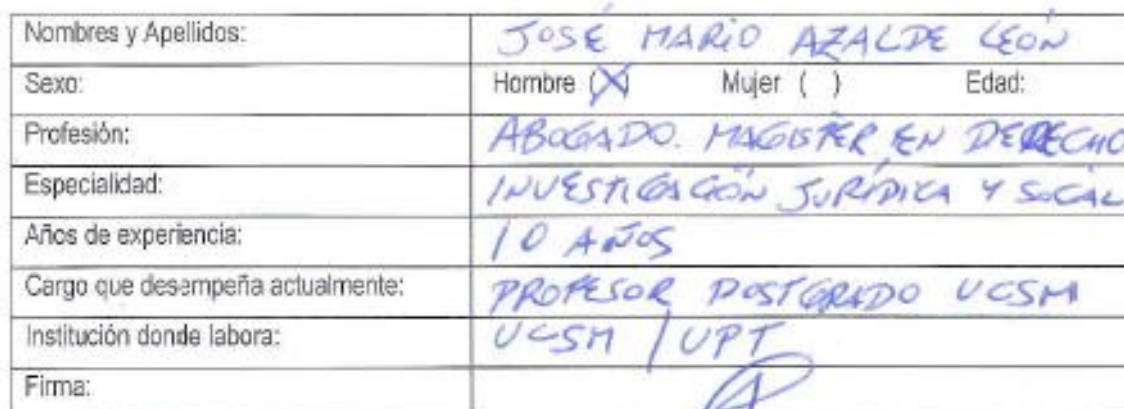 Nombres y Apellidos: JOSÉ MARIO AZALDE LEÓN
Sexo: Hombre (X) Mujer ( ) Edad:
Profesión: ABOGADO. MAGISTER EN DERECHO
Especialidad: INVESTIGACIÓN JURÍDICA Y SOCIAL
Años de experiencia: 10 AÑOS
Cargo que desempeña actualmente: PROFESOR POSTGRADO UCSM
Institución donde labora: UCSM / UPT
Firma: